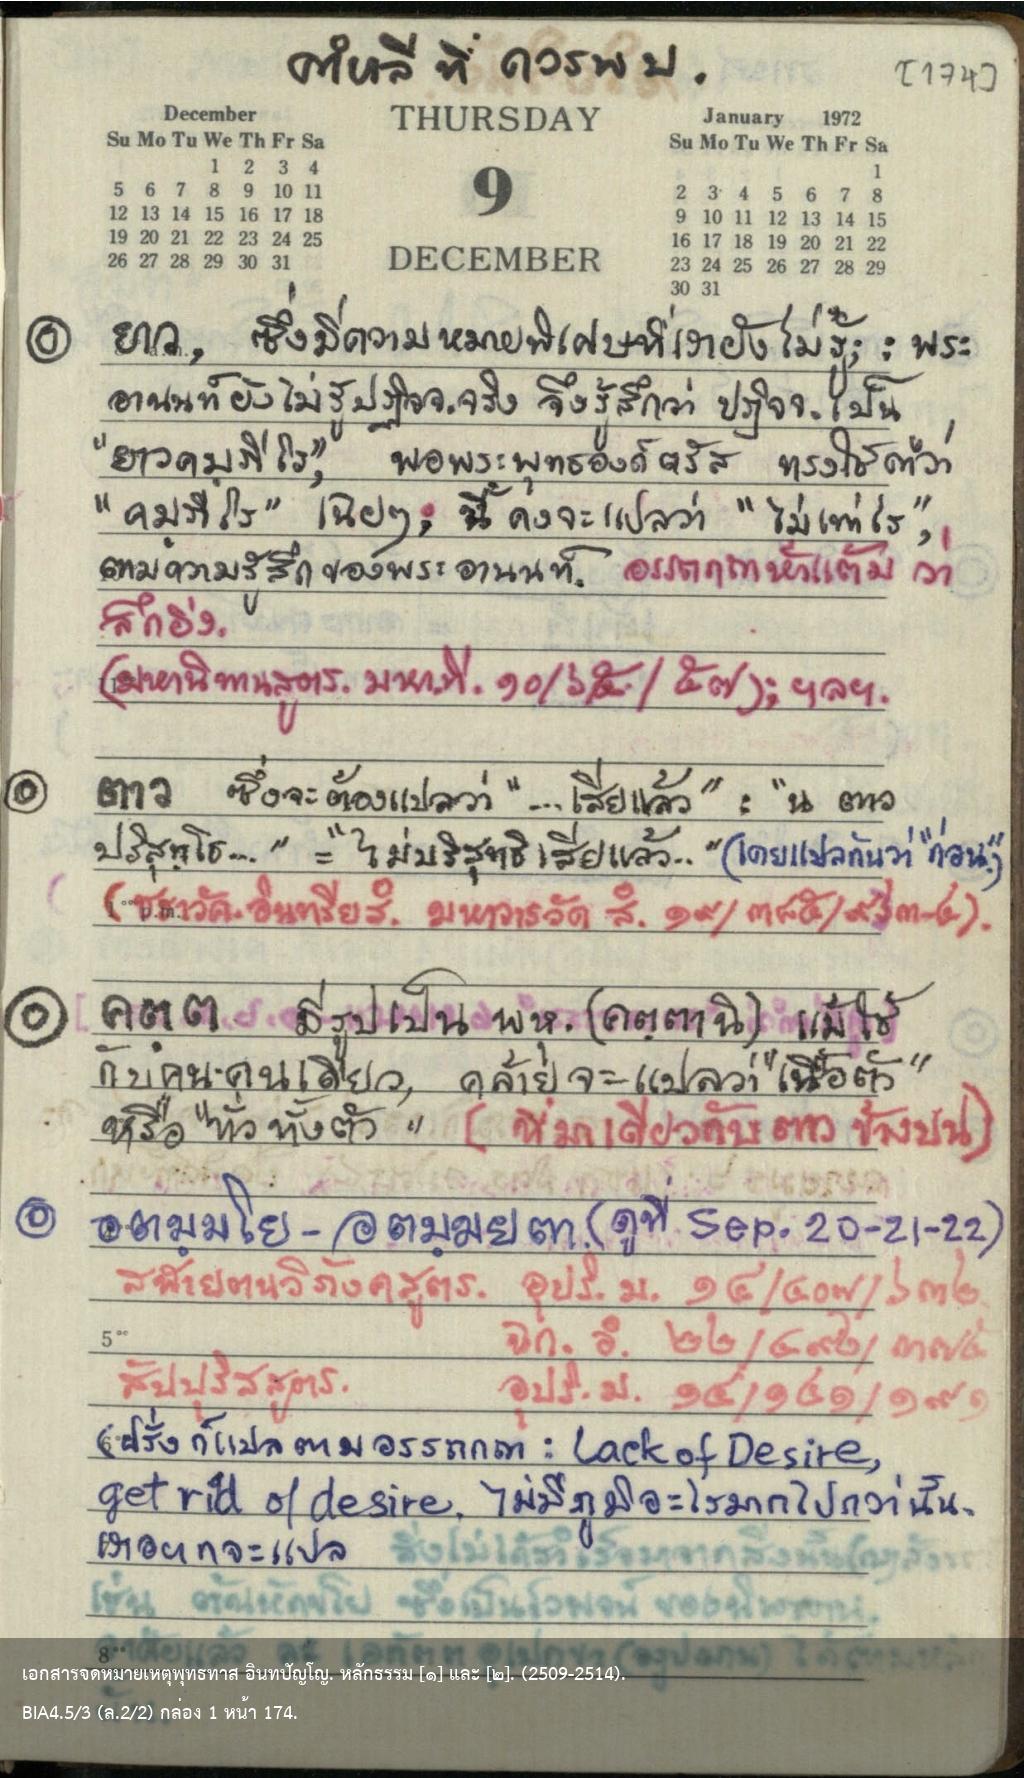 คำบาลี ที่ ควรพบ.
[174]
December
Su Mo Tu We Th Fr Sa
1 2 3 4
5 6 7 8 9 10 11
12 13 14 15 16 17 18
19 20 21 22 23 24 25
26 27 28 29 30 31
THURSDAY
9
DECEMBER
January 1972
Su Mo Tu We Th Fr Sa
1
2 3 4 5 6 7 8
9 10 11 12 13 14 15
16 17 18 19 20 21 22
23 24 25 26 27 28 29
30 31
ยาว, ซึ่งมีความหมายพิเศษที่เรายังไม่รู้; : พระ
อานนท์ยังไม่รู้ปฏิจจ.จริง จึงรู้สึกว่า ปฏิจจ. เป็น
"ยาวคมฺภีโร", พอพระพุทธองค์ตรัส ทรงใช้คำว่า
"คมฺภีโร" เฉยๆ; นี้ คงจะแปลว่า "ไม่เท่าไร",
ตามความรู้สึกของพระอานนท์. อรรถกถา ว่า
ลึกยิ่ง.
(มหานิทานสูตร. มหา.ที. ๑๐/๖๕/๕๗); ฯลฯ.
ตาว ซึ่งจะต้องแปลว่า "...เสียแล้ว" : "น ตาว
ปริสุทฺโธ..." = "ไม่บริสุทธิเสียแล้ว.." (เคยแปลกันว่า "ก่อน")
(ชราวัค.อินทรียสํ. มหาวารวัค สํ. ๑๙/๓๘๕/
p.m.
คตฺต มีรูปเป็น พหุ. (คตฺตานิ) แม้ใช้
กับคน.คนเดียว, คล้ายจะแปลว่า "เนื้อตัว"
หรือ "ทั่วทั้งตัว" (ที่มาเดียวกับ ตาว ข้างบน)
อตมฺมโย - อตมฺมยตา (ดูที่ Sep. 20-21-22)
สฬายตนวิภังคสูตร. อุปริ.ม. ๑๔/๔๐๗/๖๓๒
5⁰⁰ ฉก. อํ. ๒๒/
สัปปุริสสูตร. อุปริ.ม. ๑๔/๑๔๑/๑๙๑
(ฝรั่งก็แปลตามอรรถกถา : Lack of Desire,
get rid of desire. ไม่มีภูมิอะไรมากไปกว่านั้น.
เราอยากจะแปล สิ่งไม่ได้สำเร็จมาจากสิ่งนั้น
เช่น ตัณหักขโย ซึ่งเป็นไวพจน์ ของนิพพาน.
8⁰⁰
เอกสารจดหมายเหตุพุทธทาส อินทปัญโญ. หลักธรรม [๑] และ [๒]. (2509-2514).
BIA4.5/3 (ล.2/2) กล่อง 1 หน้า 174.